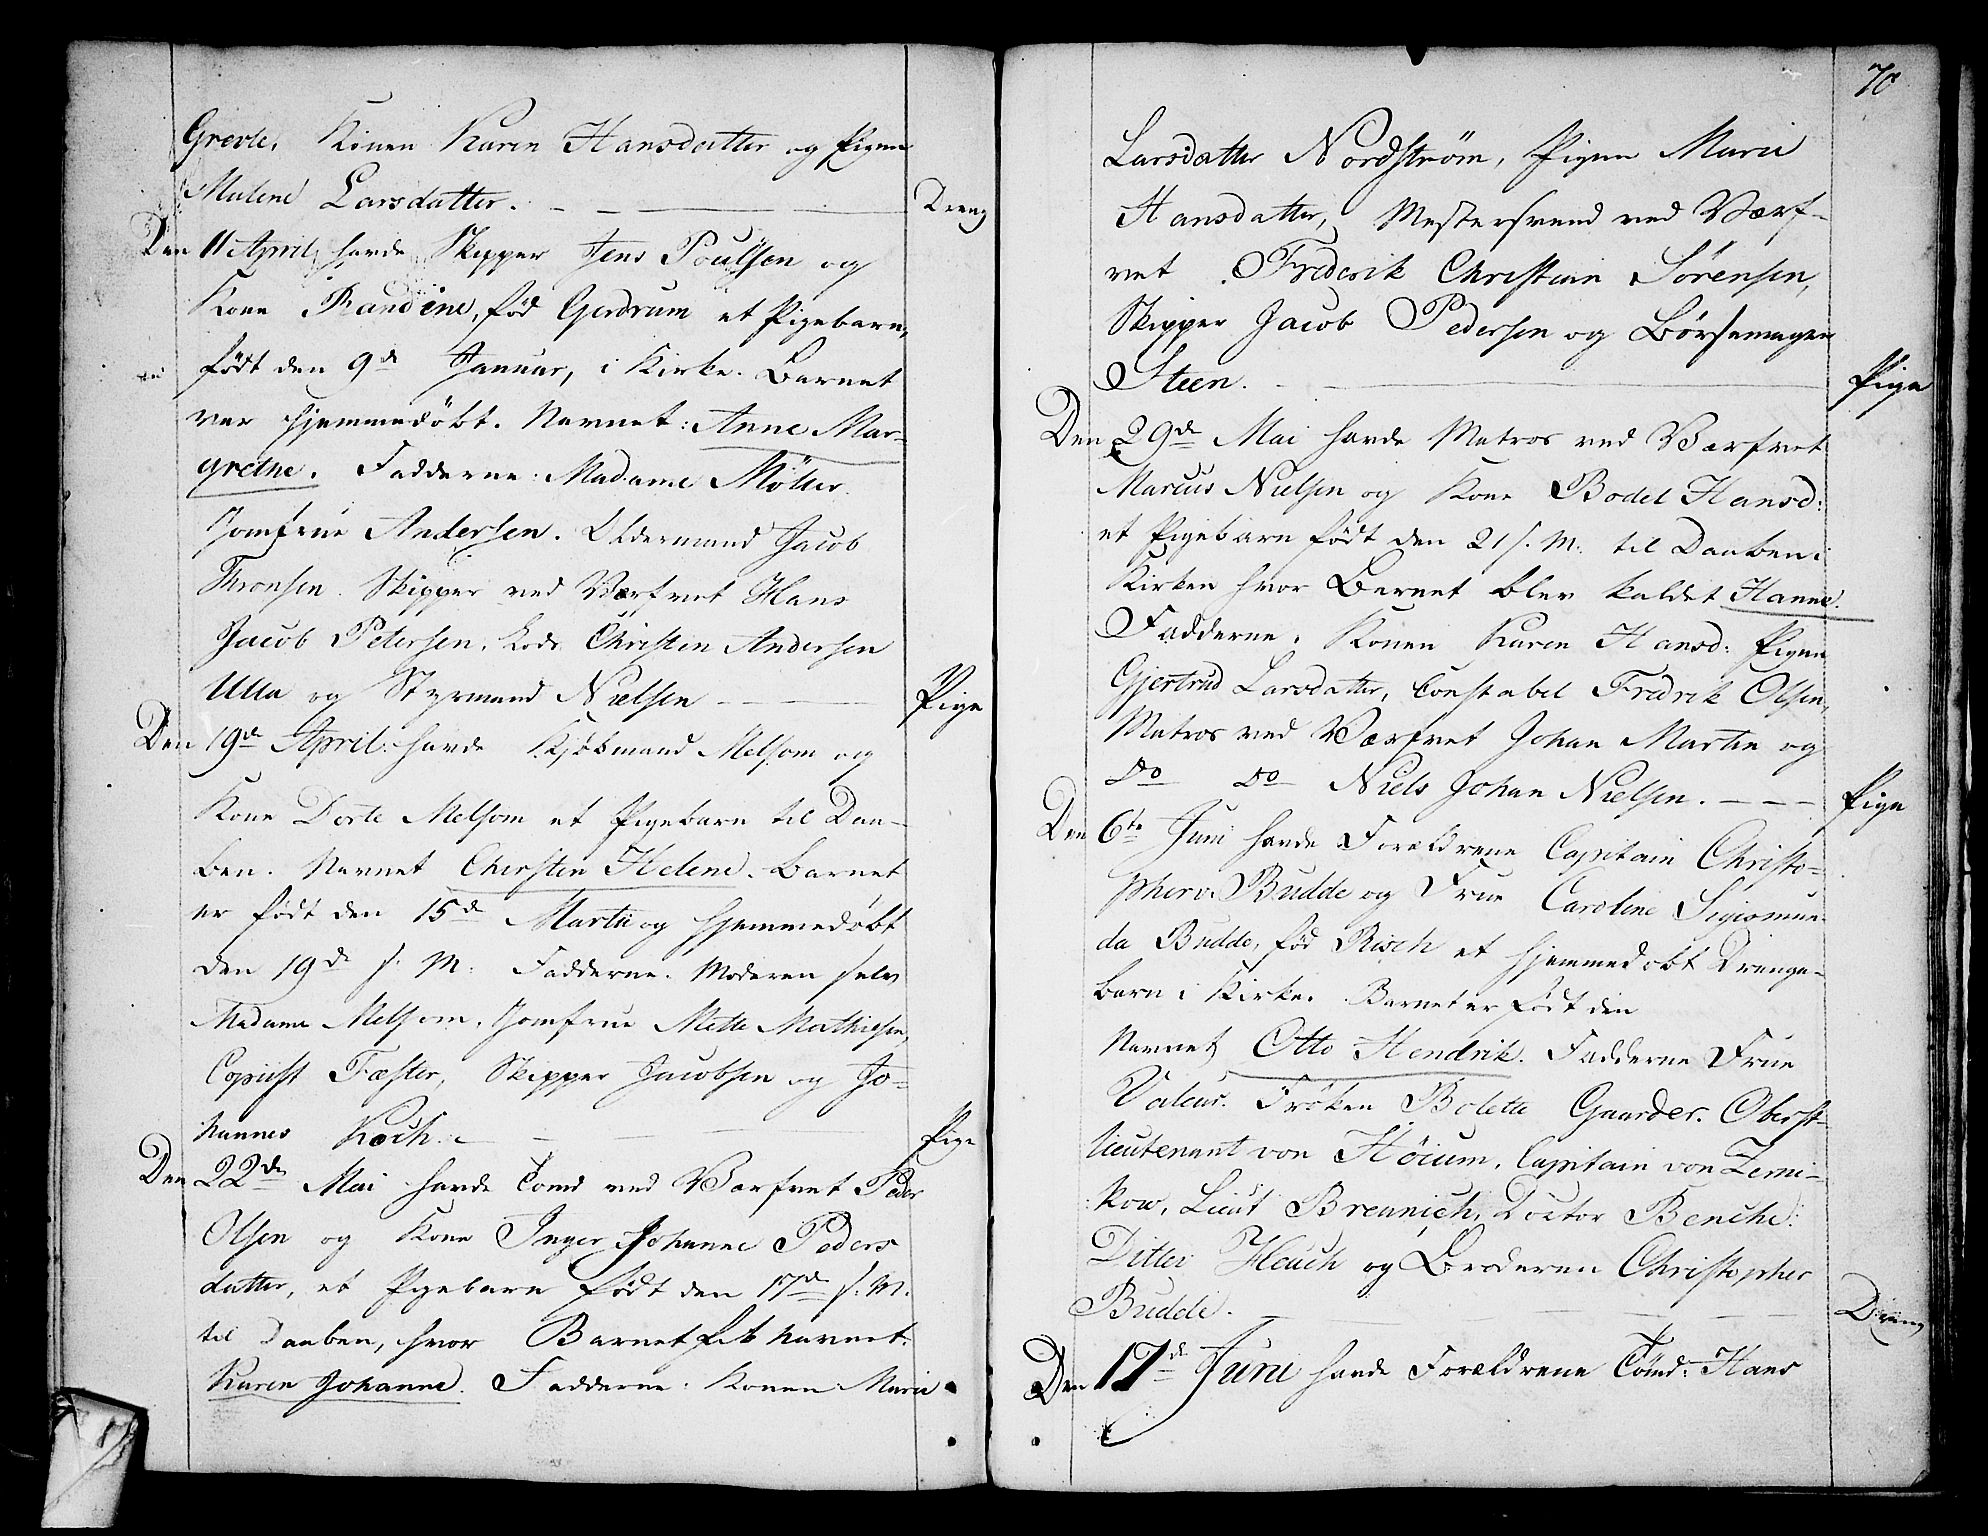 Grevle, Konen Karen Hansdatter og Pigen
Malene Larsdatter. Dreng
Den 11 April havde Skipper Jens Poulsen og
Kone Randine, fød Gerdrum et Pigebarn,
født den 9de Januar, i Kirke. Barnet
var hjemmedøbt. Navnet: Anne Mar-
grethe. Fadderne: Madame Möller.
Jomfrue Andersen. Oldermand Jacob
Thronsen. Skipper ved Værfvet Hans
Jacob Petersen. Lods Christen Andersen
Ulla og Styrmand Nielsen Pige
Den 19de April havde Kjøbmand Melsom og
Kone Dorte Melsom et Pigebarn til Daa-
ben. Navnet Chersten Helene. Barnet
er født den 15de Martii og hjemmedøbt
den 19de s. M. Fadderne. Moderen selv
Madame Melsom. Jomfrue Mette Mathiesen,
Copiist Fæster, Skipper Jacobsen og Jo-
hannes Koch. Pige
Den 22de Mai havde Tømd ved Værfvet Peder
Olsen og Kone Inger Johanne Peders
datter, et Pigebarn født den 17de s. M.
til Daaben, hvor Barnet fik Navnet:
Karen Johanne. Fadderne: Konen Marie
70
Larsdatter Nordstrøm, Pigen Marie
Hansdatter, Mestersvend ved Værf-
vet Frederik Christian Sörensen,
Skipper Jacob Pedersen og Børsemager
Steen. Pige
Den 29de Mai havde Matros ved Værfvet
Marcus Nielsen og Kone Bodel Hansd:
et Pigebarn født den 21 s. M. til Daaben i
Kirken hvor Barnet blev kaldet Hanne.
Fadderne. Konen Karen Hansd: Pigen
Gjertrud Larsdatter, Constabel Fredrik Olsen,
Matros ved Værfvet Johan Martin og
Do Do Niels Johan Nielsen. Pige
Den 6te Juni havde Forældrene Capitain Christo-
pher v. Budde og Frue Caroline Sigismun-
da Budde, fød Risch et hjemmedøbt Drenge-
barn i Kirke. Barnet er født den
Navnet Otto Hendrik. Fadderne Frue
Valeur. Frøken Bolette Gaarder. Oberst-
lieutenant von Høium. Capitain von Zerni-
kow, Lieut Breunich, Doctor Benche:
Ditlev Heuch og Broderen Christopher
Budde. Dreng
Den 17de Juni havde Forældrene Tömd: Hans